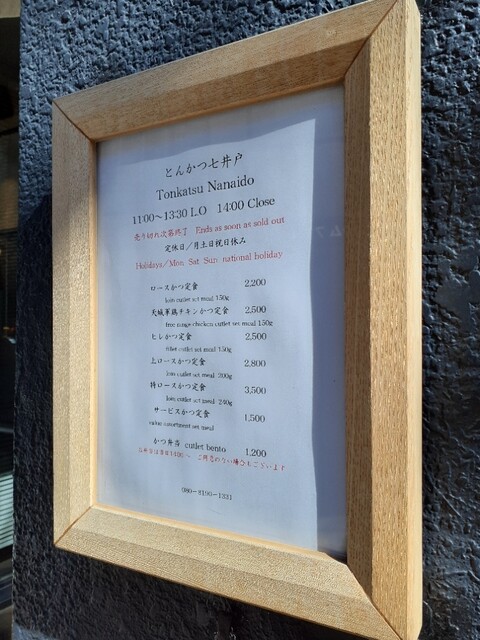 とんかつ七井戸
Tonkatsu Nanaido
11:00～13:30 L.O 14:00 Close
売り切れ次第終了 Ends as soon as sold out
定休日／月土日祝日休み
Holidays／Mon Sat Sun national holiday
ロースかつ定食 2,200
loin cutlet set meal 150g
天城軍鶏チキンかつ定食 2,500
free range chicken cutlet set meal 150g
ヒレかつ定食 2,500
fillet cutlet set meal 150g
上ロースかつ定食 2,800
loin cutlet set meal 200g
特ロースかつ定食 3,500
loin cutlet set meal 240g
サービスかつ定食 1,500
value assortment set meal
かつ弁当 cutlet bento 1,200
ご用意のない場合もございます
080-8196-1331